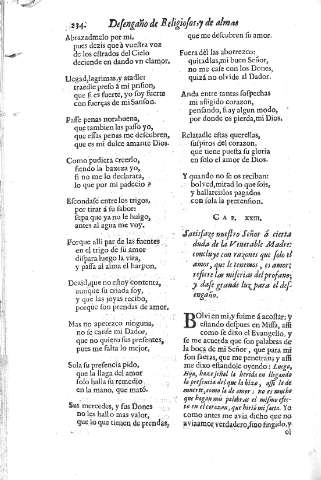 234. Desengaño de Religiosos, y de almas
Abrazadmelo por mi,
pues dezis que à vuestra voz
de los estrados del Cielo
deciende en dando vn clamor.
Llegad, lagrimas, y ataisle
traedle preso à mi prision,
que si es fuerte, yo soy fuerte
con fuerças de mi Sanson.
Passe penas norabuena,
que tambien las passo yo,
que essas penas me descubren,
que es mi dulce amante Dios.
Como pudiera creerlo,
siendo la baxeza yo,
si no me lo declarara,
lo que por mi padeciò?
Escondase entre los trigos,
por tirar à su sabor:
sepa que ya no le huigo,
antes al agua me voy.
Porque alli par de las fuentes
en el trigo de su amor
dispara luego la vira,
y passa al alma el harpon.
que no estoy contenta,
aunque su criada soy,
y que las joyas recibo,
porque son prendas de amor.
Mas no apetezco ninguna,
no se canse mi Dador,
que no quiero sus presentes,
pues me falta lo mejor.
Sola su presencia pido,
que la llaga del amor
solo halla su remedio
en la mano, que matò.
Sus mercedes, y sus Dones
no les hallo mas valor,
que lo que tienen de prendas,
que me descubren su amor.
Fuera dèl las aborrezco:
quitadlas, mi buen Señor,
no me case con los Dones,
quizà no olvide al Dador.
Anda entre tantas sospechas
mi afligido corazon,
pensando, si ay algun modo,
por donde os pierda, mi Dios.
Relatadle estas querellas,
suspiros del corazon,
que tiene puesta su gloria
en solo el amor de Dios.
Y quando no se os reciban:
bolved, mirad lo que sois,
y hallareislos pagados
con sola la pretension.
CAP. XXIII.
Satisfaze nuestro Señor à cierta
duda de la Venerable Madre:
concluye con razones que solo el
amor, que le tenemos, es amor;
refiere las miserias del profano;
y dase grande luz para el desengaño.
BOlvi en mi, y fuime à acostar; y
estando despues en Missa, assi
como se dixo el Evangelio, y
se me acuerda que son palabras de
la boca de mi Señor, que para mi
son saetas, que me penetran; y assi
me dixo estandole oyendo: Luego,
Hija, haze señal la herida en llegando
la presencia del que la hizo, assi le de
muerte, como la de amor: no es mucho
que hagan mis palabras el mismo efecto
en el corazon, que hiriò mi saeta. Yo
como antes me avia dicho que no
avia amor verdadero, sino fingido, y
el